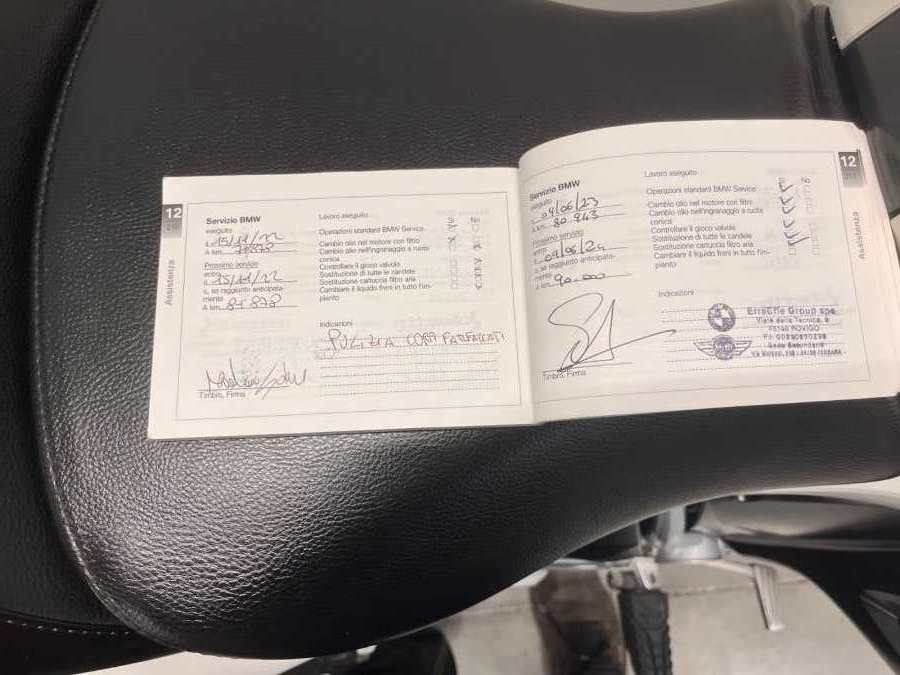 12
Assistenza
Servizio BMW
eseguito
il 15/11/22
A km
Prossimo servizio
entro
o, se raggiunto anticipata-
mente
A km
Timbro, Firma
Lavoro eseguito
Sì No
Operazioni standard BMW Service
Cambio olio nel motore con filtro
Cambio olio nell'ingranaggio a ruota
conica
Controllare il gioco valvole
Sostituzione di tutte le candele
Sostituzione cartuccia filtro aria
Cambiare il liquido freni in tutto l'im-
pianto
Indicazioni
PULIZIA CORPI FARFALLATI
12
Assistenza
Servizio BMW
eseguito
il 09/06/23
A km 80 943
Prossimo servizio
entro
il 09/06/24
o, se raggiunto anticipata-
mente
A km 90.000
Timbro, Firma
Lavoro eseguito
Operazioni standard BMW Service
Cambio olio nel motore con filtro
Cambio olio nell'ingranaggio a ruota
conica
Controllare il gioco valvole
Sostituzione di tutte le candele
Sostituzione cartuccia filtro aria
Cambiare il liquido freni in tutto l'im-
pianto
Indicazioni
ErreEffe Group spa
Viale della Tecnica,
45100 ROVIGO
Sede Secondaria